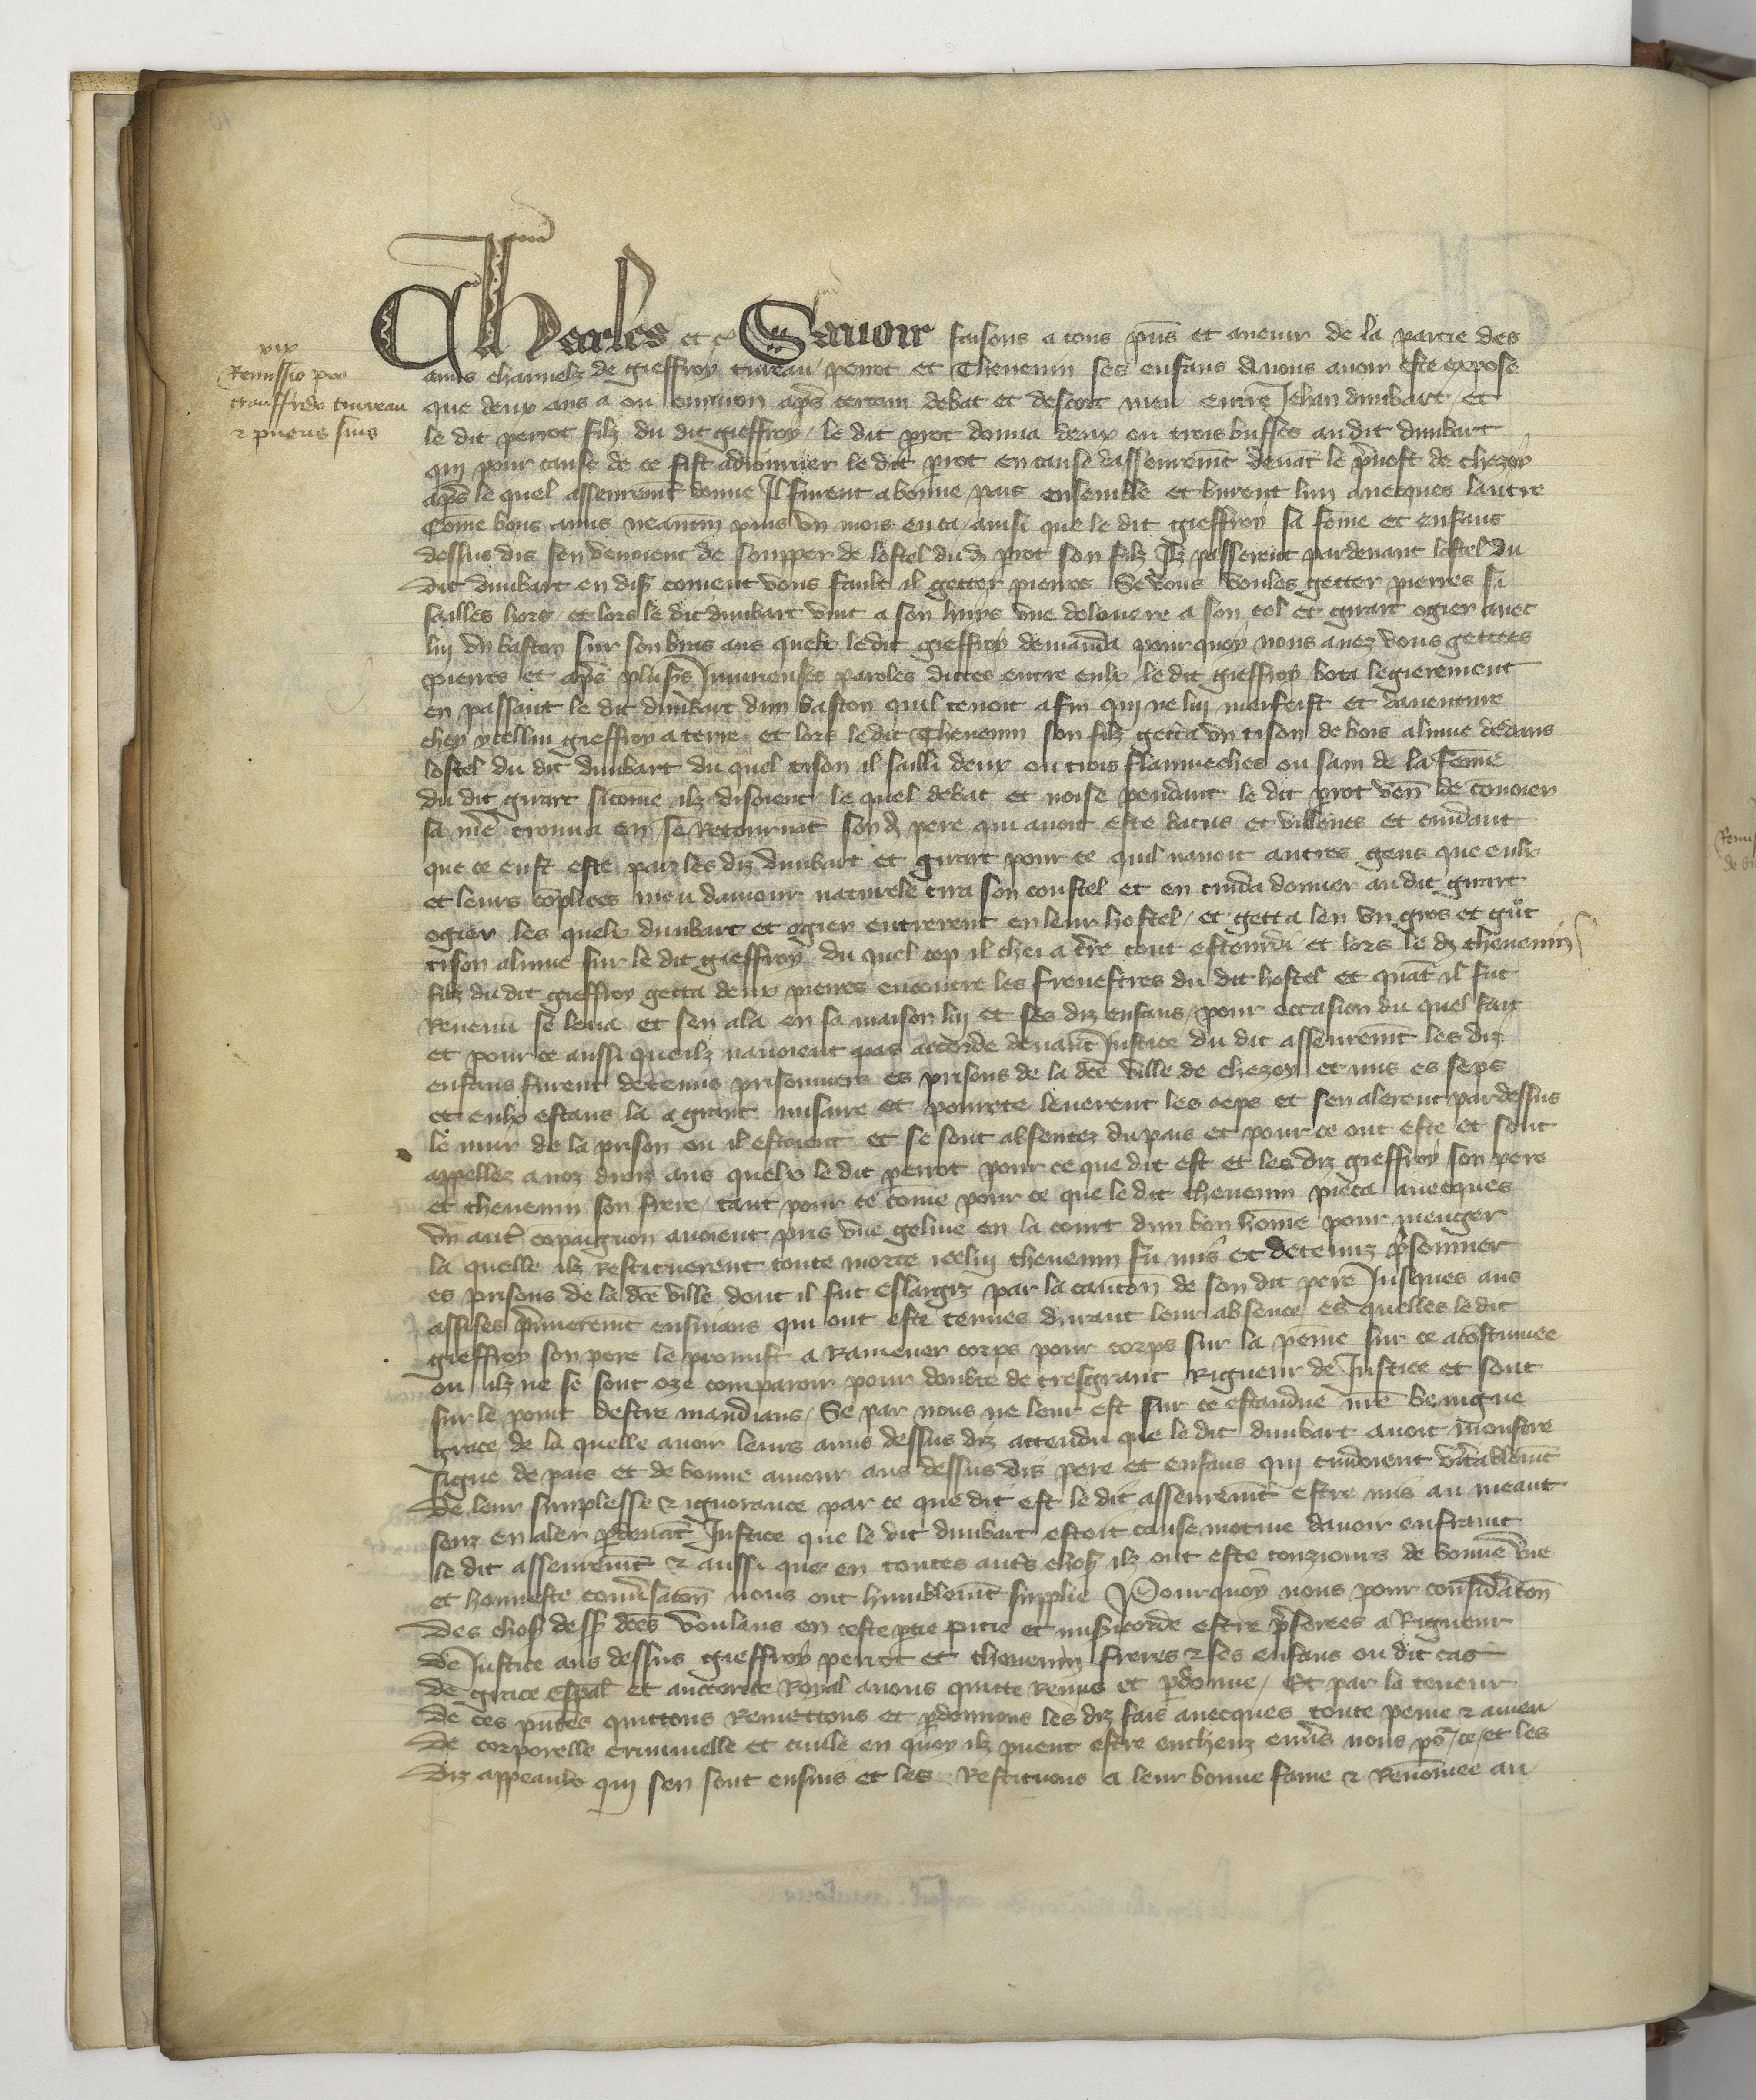 Charles et c Savoir faisons a tous pns et avenir de la partie des
xix
Remissio pro
Gauffrido
2 pueris suis
amis charnelz de gieffroy perrot et Thevenin ses enfans a nous avoir este expose
que deux ans a ou environ aps certain debat et descort meu entre Jehan dimbart et
le dit perrot filz du dit gieffroy le dit prot donna deux ou trois buffes audit dimbart
qui pour cause de ce fist adiourner le dit prot en cause dasseurement devat le pvost de chezoy
aps le quel asseuremt donne Il furent a bonne pais ensemble et burent lun avecques lautre
Come bons amis neantm puis un mois en ca ainsi que le dit gieffroy sa feme et enfans
dessus dis sen venoient de soupper de lostel dud prot son filz Ilz passerent pardevant lostel du
dit dimbart en dis coment vous fault il getter pierres Se vous voules getter pierres si
sailles hors et lors le dit dimbart vint a son huys une dolouere a son col et girart ogier avec
lui un baston sur son bras aus quelx le dit gieffroy demanda pour quoy nous avez vous gettees
pierres et aps plusrs Iniurieuses paroles dictes entre eulx le dit gieffroy bota legierement
en passant le dit dimbart dun baston quil tenoit afin qui ne lui meffeist et daventure
chey ycellui gieffroy a terre et lors ledit Thevenin son filz getta un tison de bois alume dedans
lostel du dit dimbart du quel tison il sailli deux ou trois flammeches ou sain de la feme
du dit girart sicome ilz disoient le quel debat et noise pendant le dit prot ven de convoier
sa mere trouva en se retournat sond pere qui avoit este batus et villenes et cuidant
que ce eust este par les diz dimbart et girart pour ce quil navoit autres gens que eulx
et leurs coplices meu damour naturele tira son coustel et en cuida donner audit girart
ogier les quelx dimbart et ogier entrerent en leur hostel et getta len un gros et gnt
tison alume sur le dit gieffroy du quel cop il chei a tre tout estourdi et lors le dz thevenin
filz du dit gieffroy getta deux pierres encontre les freuestres du dit hostel et quat il fut
Revenu se leva et sen ala en sa maison lui et ses diz enfans pour occasion du quel fait
et pour ce aussi queilz navoient pas accorde devant Justice du dit asseuremt les diz
enfans furent detenus prisonniers es prisons de la dce ville de chezoy et mis es seps
et eulx estans la a grant misaire et povrete leverent les seps et sen alerent pardessus
le mur de la prison ou il estoient et se sont absentez du pais et pour ce ont este et sont
appellez a noz droiz aus quelx le dit perrot pour ce que dit est et les diz gieffroy son pere
et thevenin son frere tant pour ce come pour ce que le dit thevenin pieca avecques
un aut copaignon avoient pris une geline en la court dun bon home pour menger
la quelle ilz restituerent toute morte icelui thevenin fu mis et detenuz psonnier
es prisons de la dce ville dont il fut eslargiz par la caution de son dit pere Jusques aus
assises pmierent ensuians qui ont este tenues durant leur absence es quelles le dit
gieffroy son pere le promist a Ramener corps pour corps sur la peine sur ce acostumee
ou ilz ne se sont oze comparoir pour doubte de tresgrant Rigueur de Justice et sont
sur le point destre mandians Se par nous ne leur est sur ce estandue nre benigne
grace de la quelle avoir leurs amis dessus diz attendu que le dit dimbart avoit monstre
signe de pais et de bonne amour aus dessus diz pere et enfans qui cuidoient vritablemt
De leur simplesse 2 ignorance par ce que dit est le dit asseuremt estre mis au neant
senz en aler pdevat Justice que le dit dimbart estoit cause motive davoir enfraint
le dit asseuremt 2 aussi que en toutes auts chos ilz ont este touziours de bonne vie
et honneste conversaton nous ont humblemt supplie Pourquoy nous pour consideraton
Des chos dess dces voulans en ceste ptie pitie et misicorde estre pferees a Rigueur
de Justice aus dessus gieffroy perrot et thevenin freres 2 ses enfans ou dit cas
de grace espal et auctorite Royal avons quitte Remis et pdonne Et par la teneur
De ces pntes quittons Remettons et pdonnons les diz fais avecques toute peine 2 amen
De corporelle criminelle et civile en quoy ilz puent estre encheuz envers nous ps ce et les
diz appeaulx qui sen sont ensuis et les Restituons a leur bonne fame 2 Renommee au